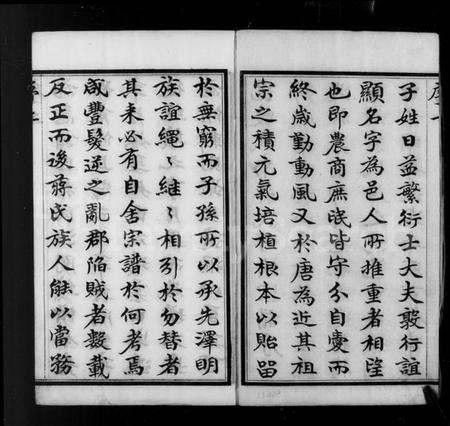 子姓日益繁衍士大夫敦行誼
顯名字為邑人所推重者相望
也即農商庶氓皆守分自愛而
終歲勤動風又於唐為近其祖
宗之積元氣培植根本以貽留
於無窮而子孫所以承先澤明
族誼繩〻繼〻相引於勿替者
其來必有自舍宗譜於何考焉
咸豐髮逆之亂郡陷賊者數載
反正而後蔣氏族人能以當務